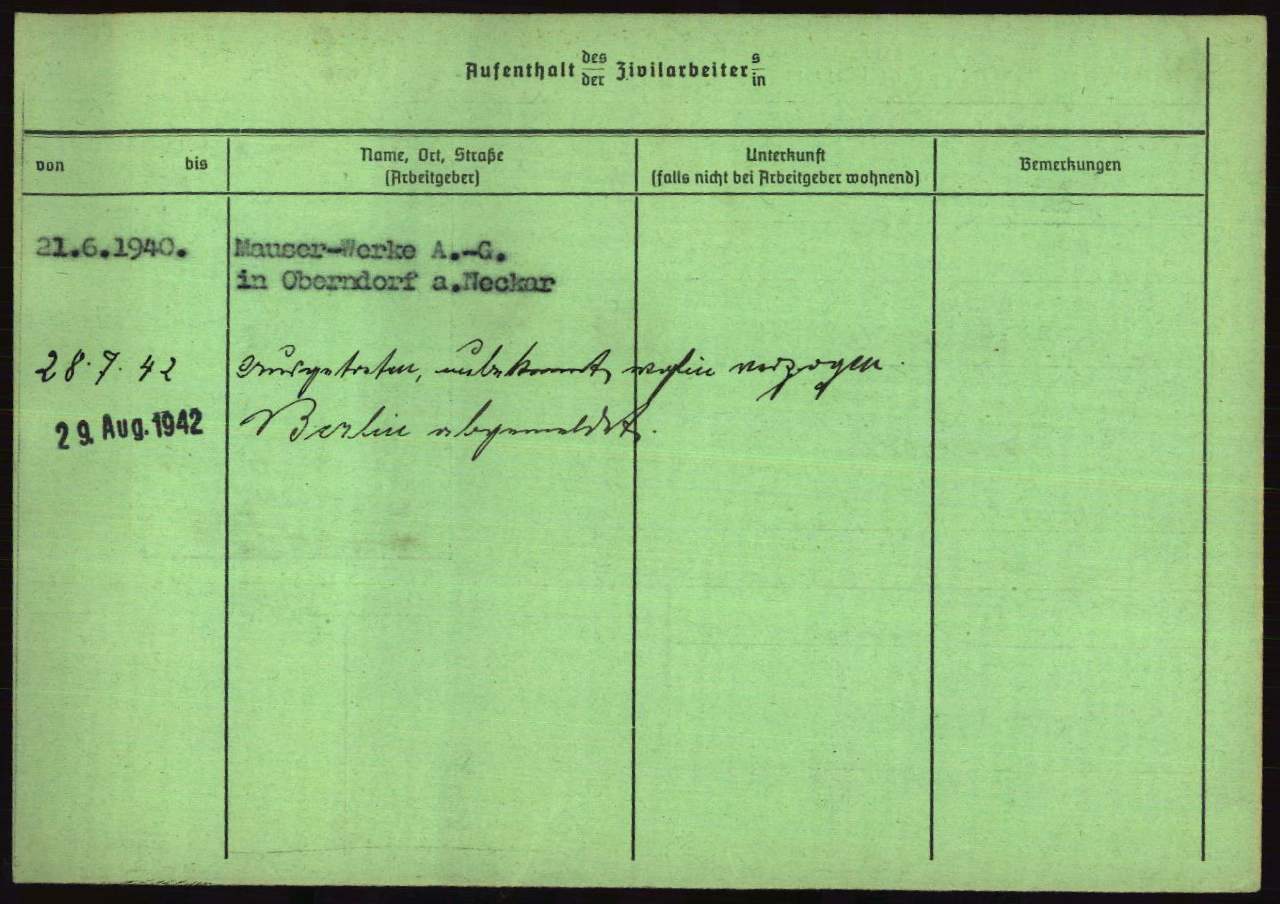 Aufenthalt des/der Zivilarbeiters/in
von bis
Name, Ort, Straße
(Arbeitgeber)
Unterkunft
(falls nicht bei Arbeitgeber wohnend)
Bemerkungen
21.6.1940. Mauser-Werke A.-G.
in Oberndorf a.Neckar
28.7.42 Ausgetreten, unbekannt wohin verzogen.
29. Aug. 1942 Berlin abgemeldet.